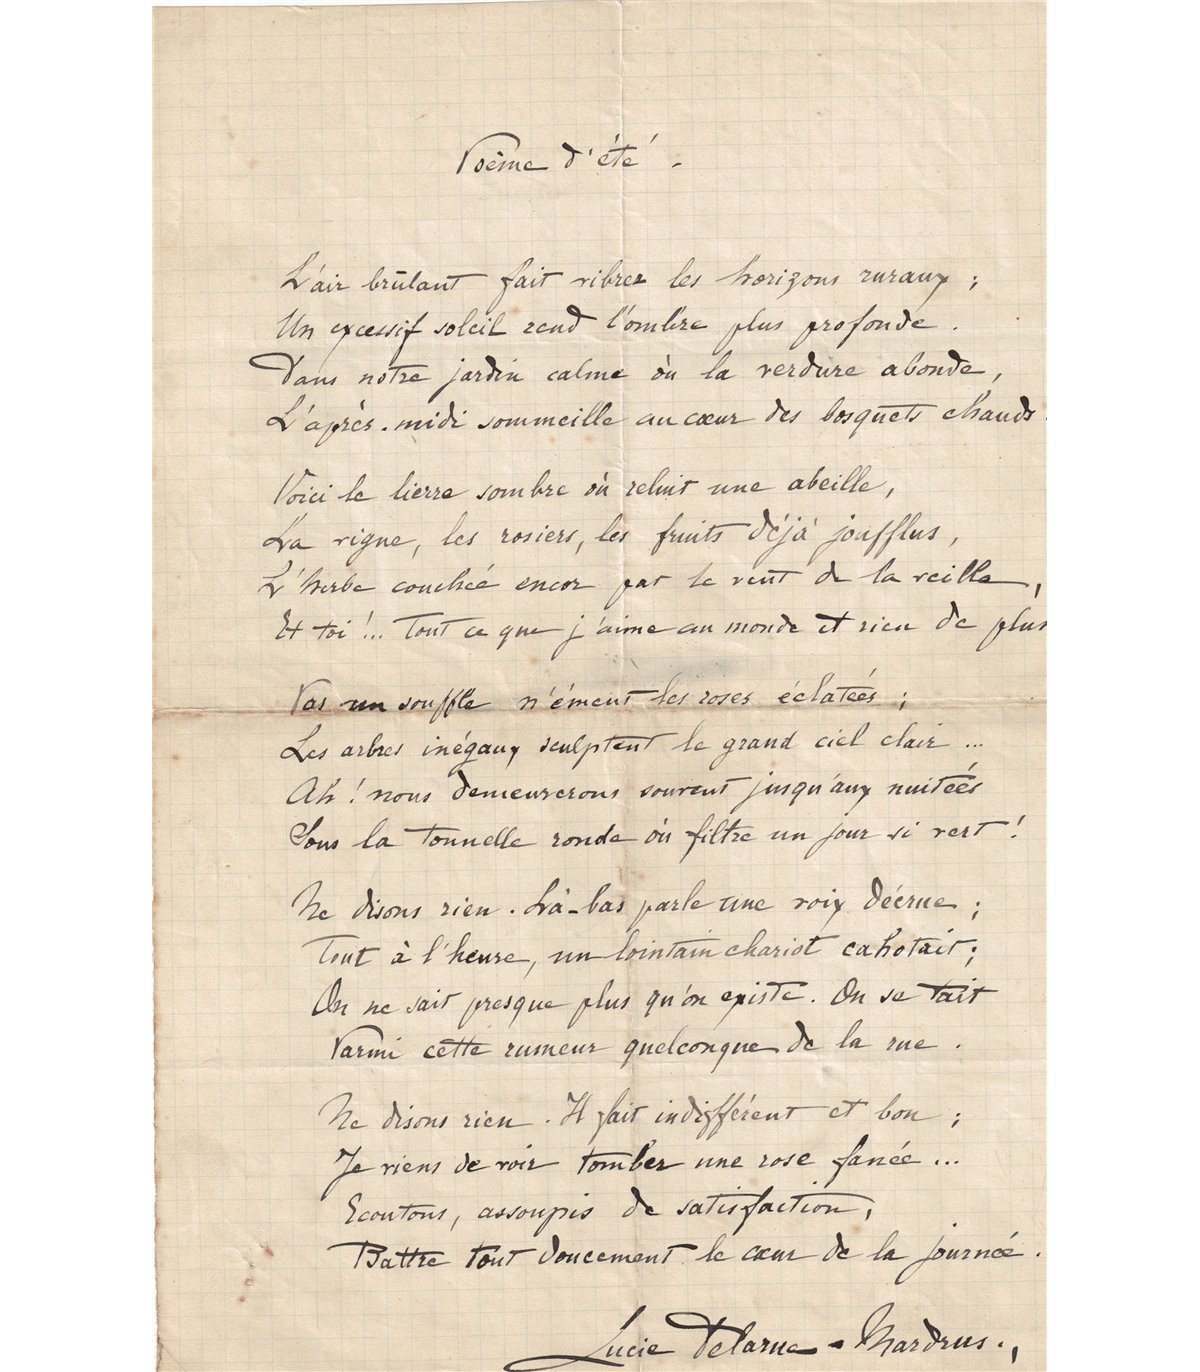 Poème d'été.
L'air brûlant fait vibrer les horizons ruraux ;
Un excessif soleil rend l'ombre plus profonde.
Dans notre jardin calme où la verdure abonde,
L'après-midi sommeille au cœur des bosquets chauds.
Voici le lierre sombre où reluit une abeille,
La vigne, les rosiers, les fruits déjà joufflus,
L'herbe couchée encor par le vent de la veille,
Et toi !... Tout ce que j'aime au monde et rien de plus
Pas un souffle n'émeut les roses éclatées ;
Les arbres inégaux sculptent le grand ciel clair ...
Ah ! nous demeurerons souvent jusqu'aux nuitées
Sous la tonnelle ronde où filtre un jour si vert !
Ne disons rien. Là-bas parle une voix décrue ;
Tout à l'heure, un lointain chariot cahotait ;
On ne sait presque plus qu'on existe. On se tait
Parmi cette rumeur quelconque de la rue.
Ne disons rien. Il fait indifférent et bon ;
Je viens de voir tomber une rose fanée ...
Ecoutons, assoupis de satisfaction,
Battre tout doucement le cœur de la journée.
Lucie Delarue-Mardrus.,